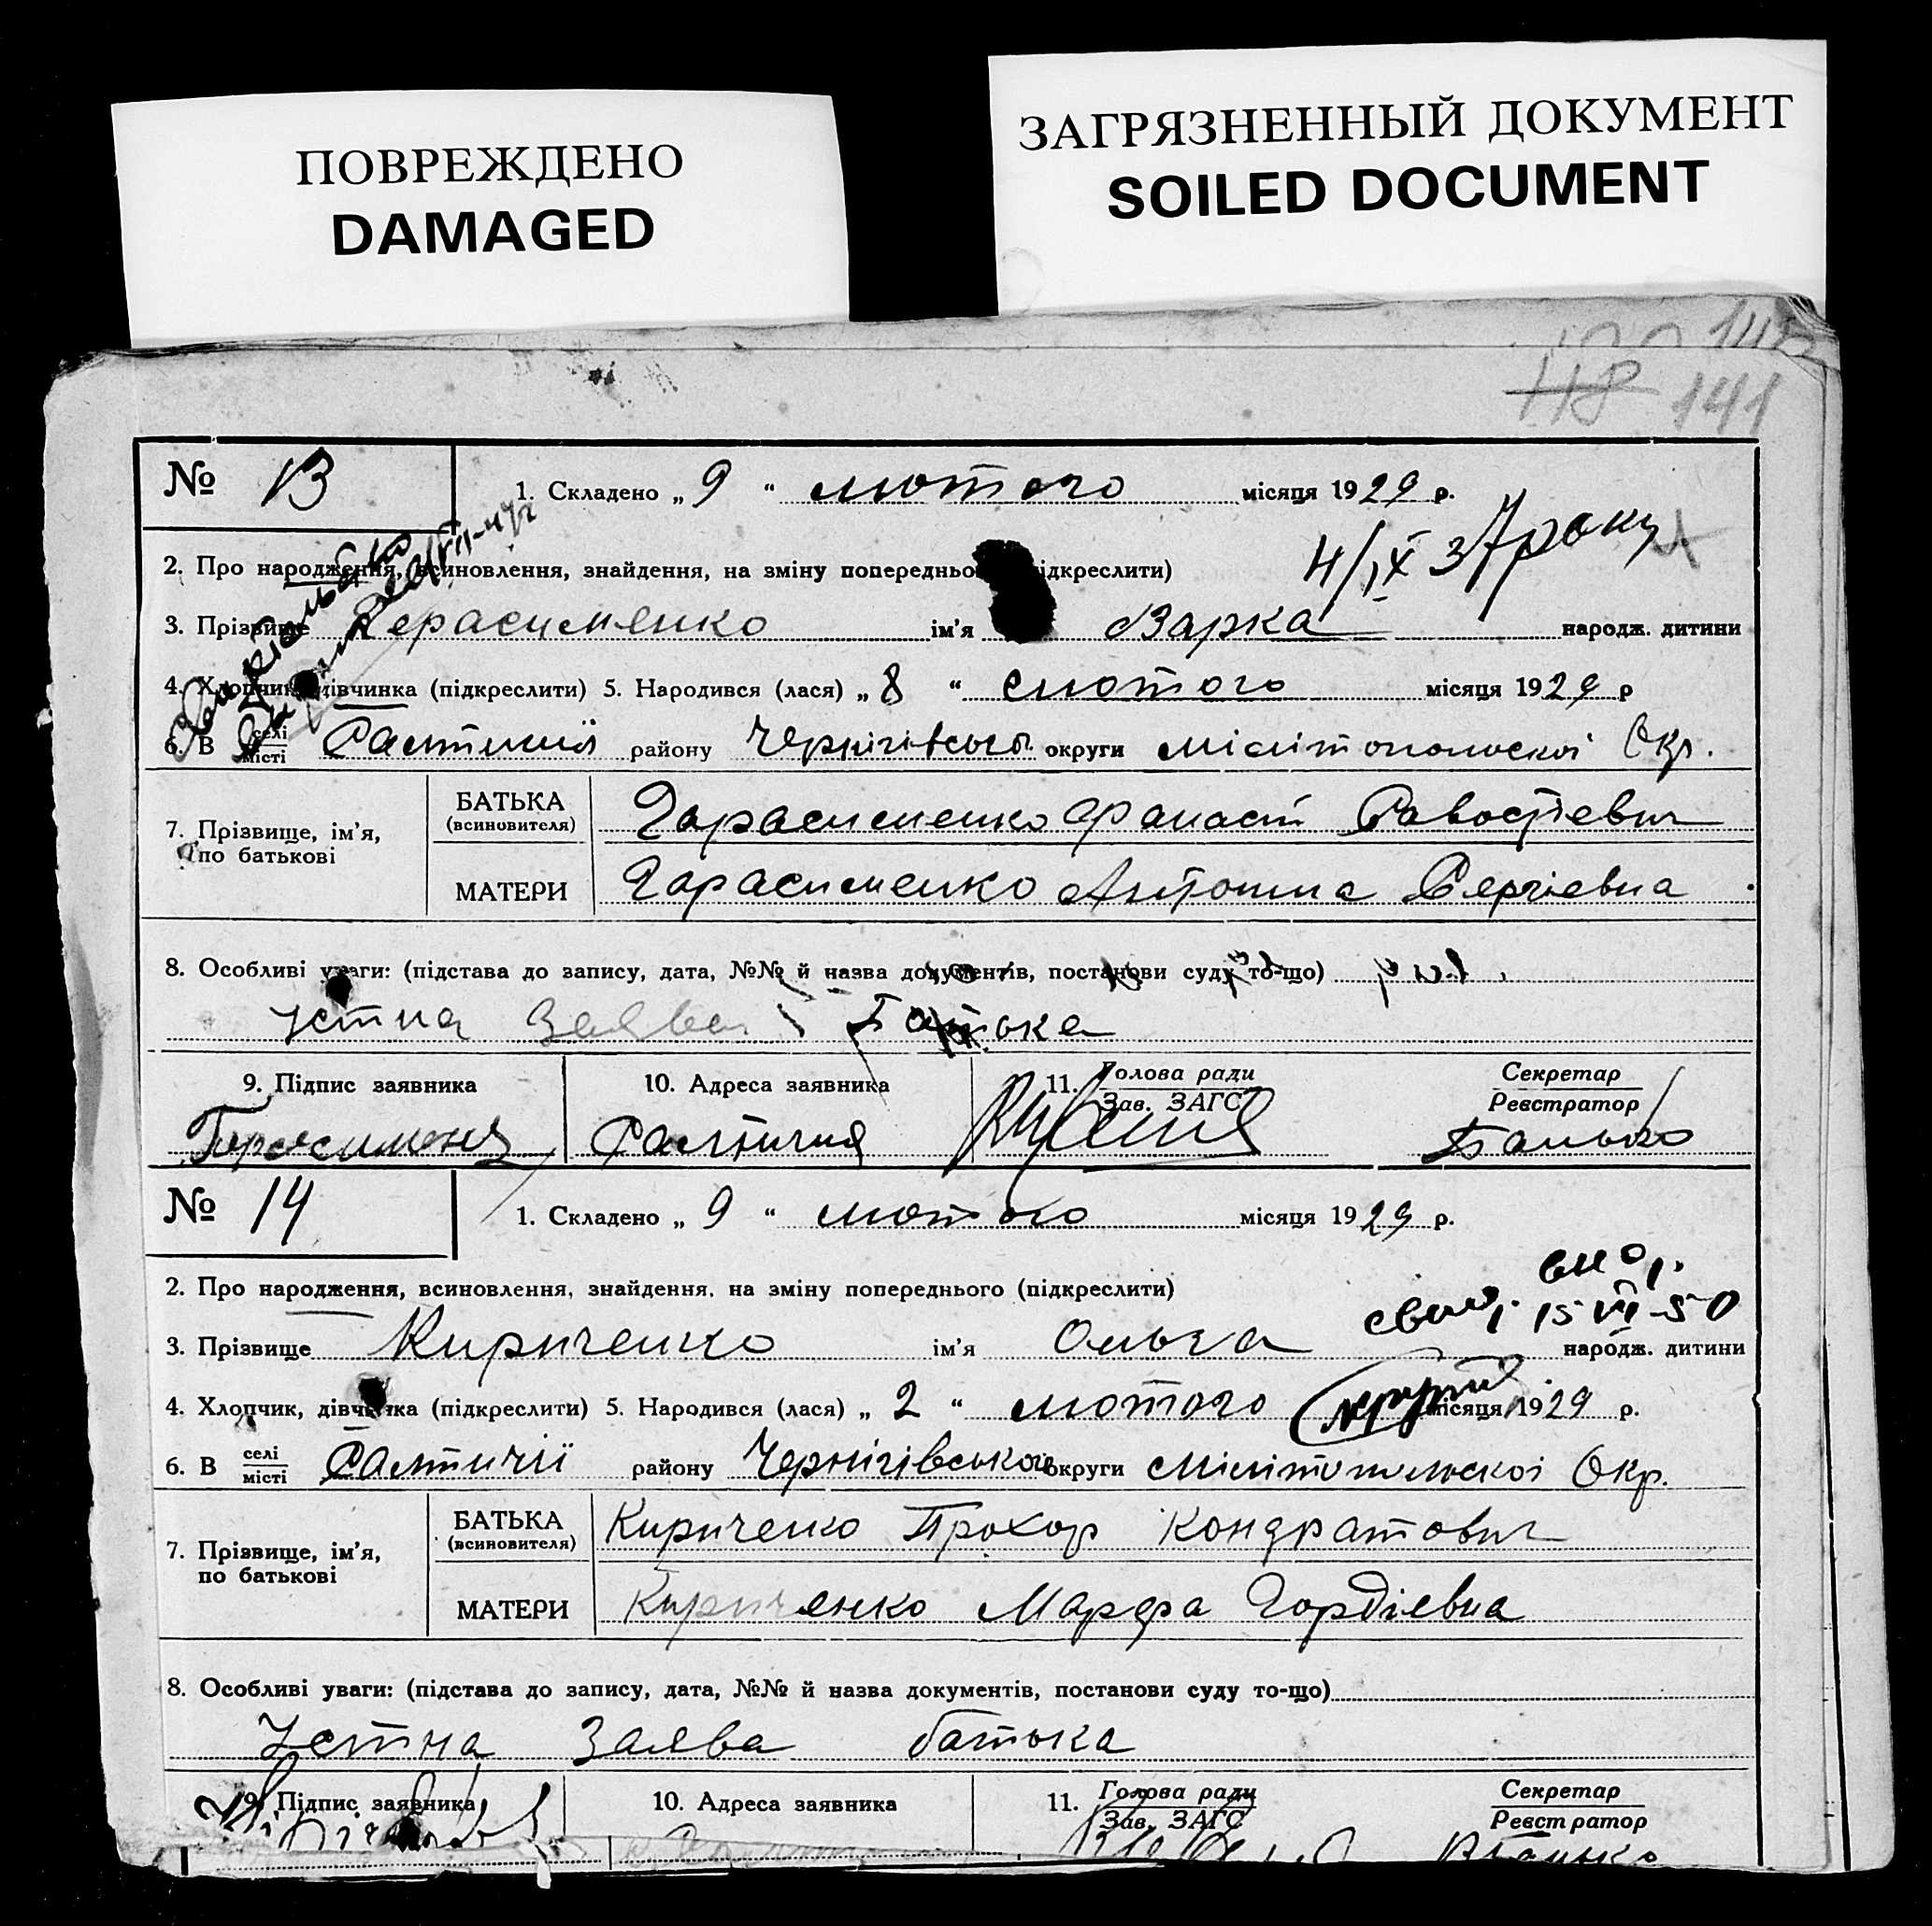 ПОВРЕЖДЕНО
DAMAGED
ЗАГРЯЗНЕННЫЙ ДОКУМЕНТ
SOILED DOCUMENT
118 141
№ 13
1. Складено „ 9 “ лютого місяця 1929 р.
2. Про народження, всиновлення, знайдення, на зміну попередньо ідкреслити)
4/IX 37 року
3. Прізвище Герасименко ім'я Варка народж. дитини
4. Хлопчик, дівчинка (підкреслити) 5. Народився (лася) „ 8 “ лютого місяця 1929 р
6. В селі/місті району Чернігівського округи Мілітопольскоі Окр.
7. Прізвище, ім'я, по батькові
БАТЬКА (всиновителя) Гарасименко Фанасій
МАТЕРИ Гарасименко Антонина Сергіевна
8. Особливі уваги: (підстава до запису, дата, №№ й назва документів, постанови суду то-що)
устна заява батька
9. Підпис заявника 10. Адреса заявника 11. Голова ради / Зав. ЗАГС Секретар / Реєстратор
№ 14
1. Складено „ 9 “ лютого місяця 1929 р.
2. Про народження, всиновлення, знайдення, на зміну попереднього (підкреслити)
15 VI-50
3. Прізвище Кириченко ім'я Ольга народж. дитини
4. Хлопчик, дівчинка (підкреслити) 5. Народився (лася) „ 2 “ лютого місяця 1929 р.
6. В селі/місті Салтичіі району Чернігівського округи Мілітопольскоі Окр.
7. Прізвище, ім'я, по батькові
БАТЬКА (всиновителя) Кириченко Прохор Кондратович
МАТЕРИ Кириченко Марфа Гордіевна
8. Особливі уваги: (підстава до запису, дата, №№ й назва документів, постанови суду то-що)
Устна Заява батька
9. Підпис заявника 10. Адреса заявника 11. Голова ради / Зав. ЗАГС Секретар / Реєстратор